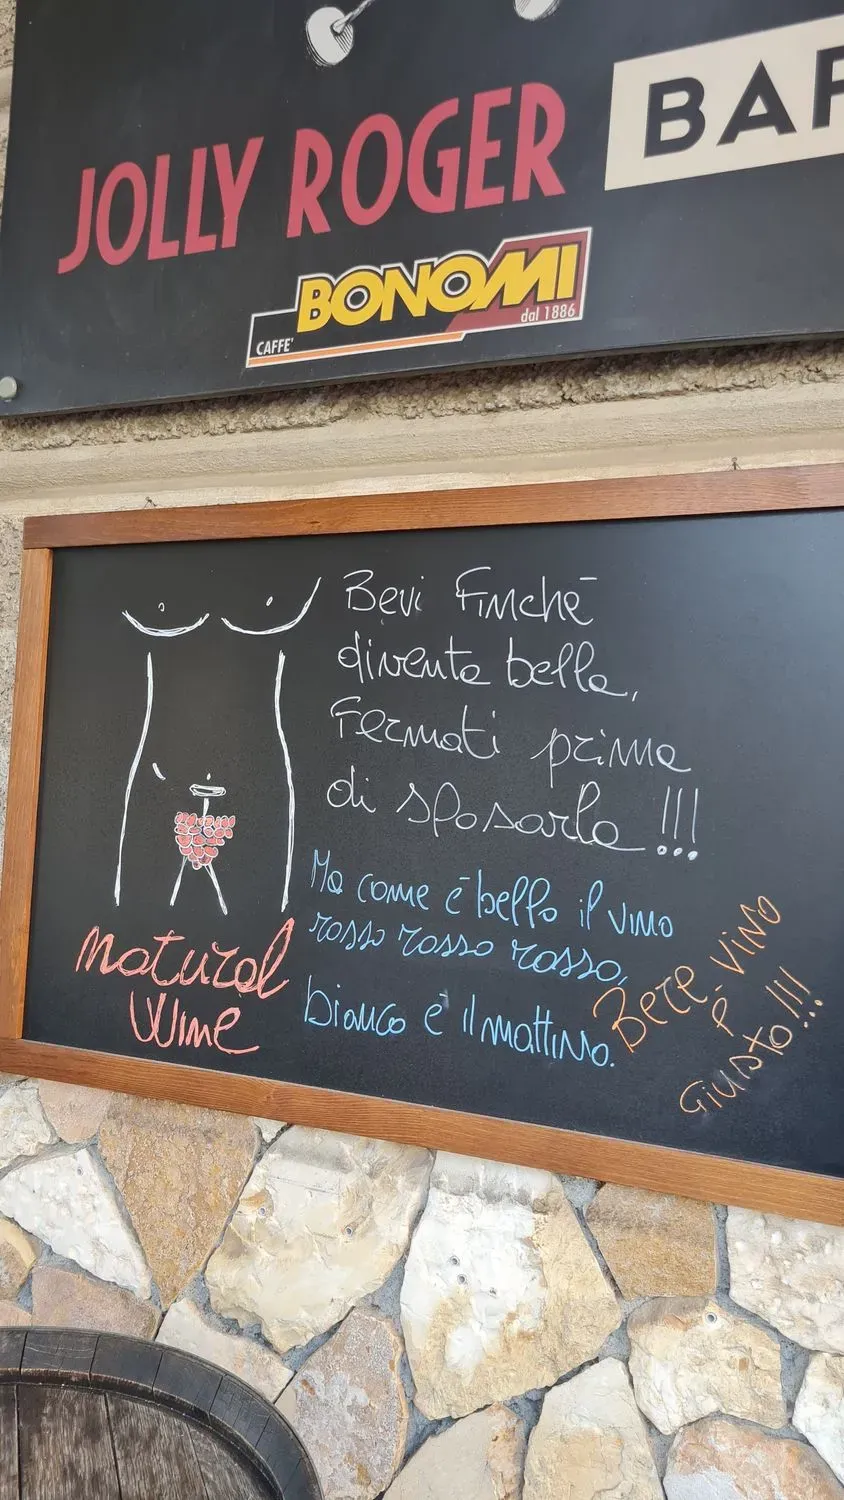 JOLLY ROGER
BAR
BONOMI
CAFFE'
dal 1886
Bevi Finchè
diventa bella,
Fermati prima
di sposarla!!!
Ma come è bello il vino
rosso rosso rosso,
bianco è il mattino.
natural
Wine
Bere vino
è
Giusto!!!